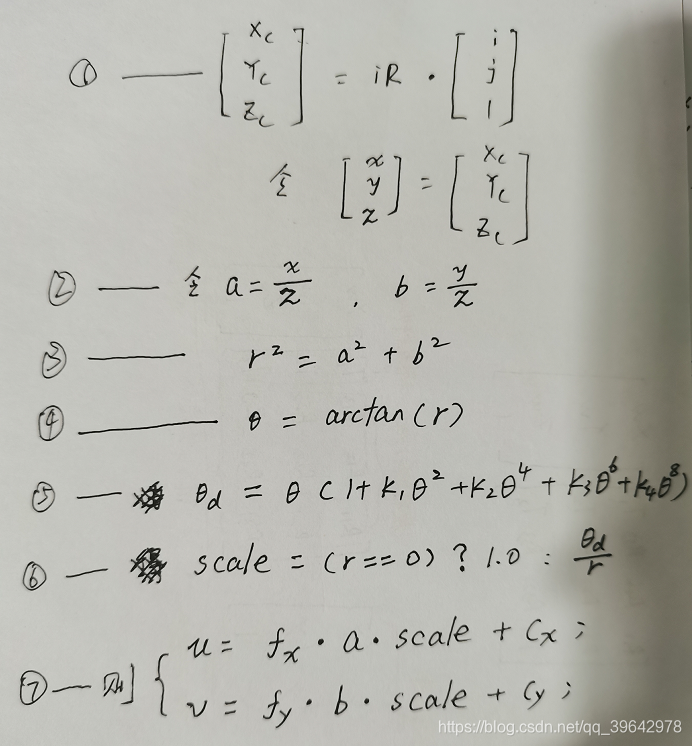 ① —— [Xc Yc Zc] = iR · [i j 1]
令 [x y z] = [Xc Yc Zc]
② —— 令 a = x/z , b = y/z
③ —— r² = a² + b²
④ —— θ = arctan(r)
⑤ —— θd = θ (1 + k₁θ² + k₂θ⁴ + k₃θ⁶ + k₄θ⁸)
⑥ —— scale = (r == 0) ? 1.0 : θd/r
⑦ — 则 { u = fx · a · scale + Cx ;
v = fy · b · scale + Cy ;
https://blog.csdn.net/qq_39642978